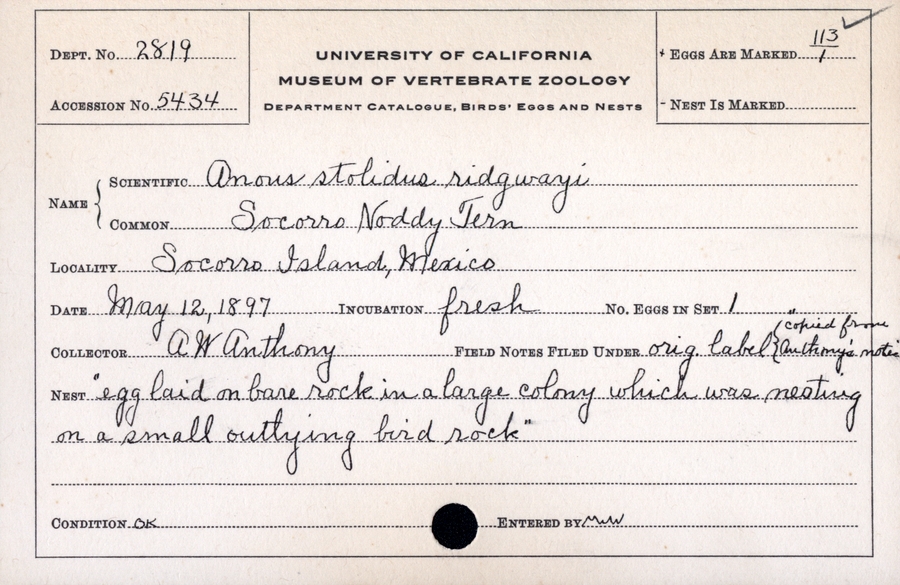 DEPT. No. 2819
UNIVERSITY OF CALIFORNIA
MUSEUM OF VERTEBRATE ZOOLOGY
DEPARTMENT CATALOGUE, BIRDS' EGGS AND NESTS
+ EGGS ARE MARKED 113/1
ACCESSION No. 5434
- NEST IS MARKED
NAME
SCIENTIFIC Anous stolidus ridgwayi
COMMON Socorro Noddy Tern
LOCALITY Socorro Island, Mexico
DATE May 12, 1897 INCUBATION fresh No. EGGS IN SET 1
COLLECTOR A W Anthony FIELD NOTES FILED UNDER orig. label {"copied from
Anthony's notes
NEST "egg laid on bare rock in a large colony which was nesting
on a small outlying bird rock"
CONDITION OK ENTERED BY